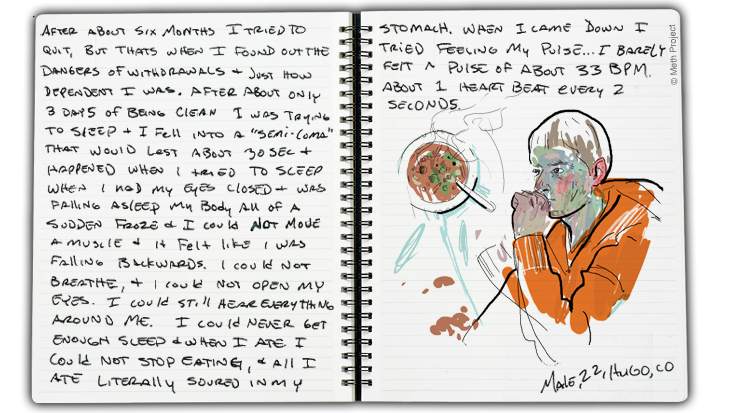 AFTER ABOUT SIX MONTHS I TRIED TO
QUIT, BUT THATS WHEN I FOUND OUT THE
DANGERS OF WITHDRAWALS & JUST HOW
DEPENDENT I WAS. AFTER ABOUT ONLY
3 DAYS OF BEING CLEAN I WAS TRYING
TO SLEEP & I FELL INTO A "SEMI-COMA"
THAT WOULD LAST ABOUT 30 SEC &
HAPPENED WHEN I TRIED TO SLEEP
WHEN I HAD MY EYES CLOSED & WAS
FALLING ASLEEP MY BODY ALL OF A
SUDDEN FROZE & I COULD NOT MOVE
A MUSCLE & IT FELT LIKE I WAS
FALLING BACKWARDS. I COULD NOT
BREATHE, & I COULD NOT OPEN MY
EYES. I COULD STILL HEAR EVERYTHING
AROUND ME. I COULD NEVER GET
ENOUGH SLEEP & WHEN I ATE I
COULD NOT STOP EATING, & ALL I
ATE LITERALLY SOURED IN MY
STOMACH. WHEN I CAME DOWN I
TRIED FEELING MY PULSE... I BARELY
FELT A PULSE OF ABOUT 33 BPM.
ABOUT 1 HEART BEAT EVERY 2
SECONDS.
© Meth Project
MALE, 22, HUGO, CO